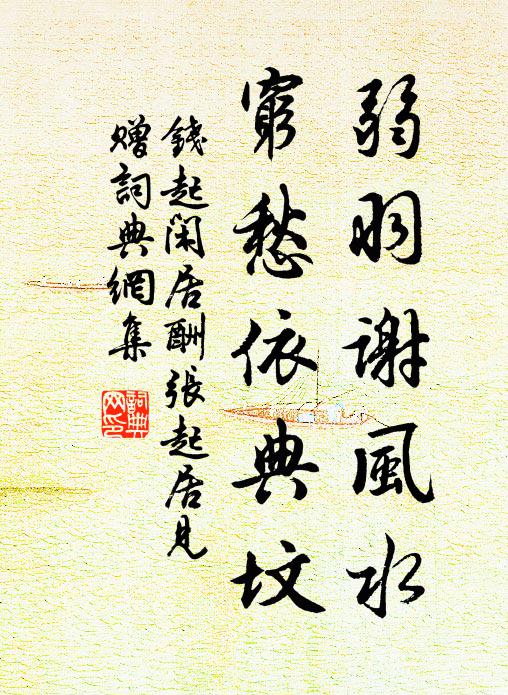 弱羽謝風水
窮愁依典墳
錢起閑居酬張起居見
贈詞典網集
詞典網印